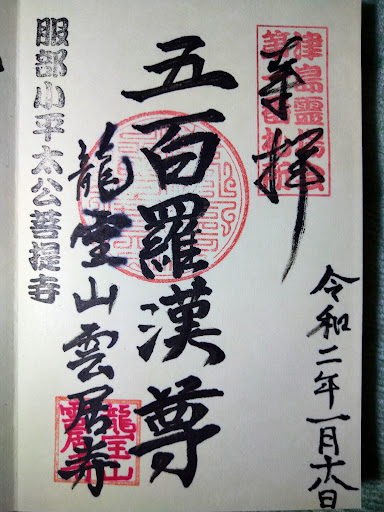 奉拝
令和二年一月十八日
五百羅漢尊
龍宝山雲居寺
服部小平太公菩提寺
津島霊場
龍宝山
雲居寺